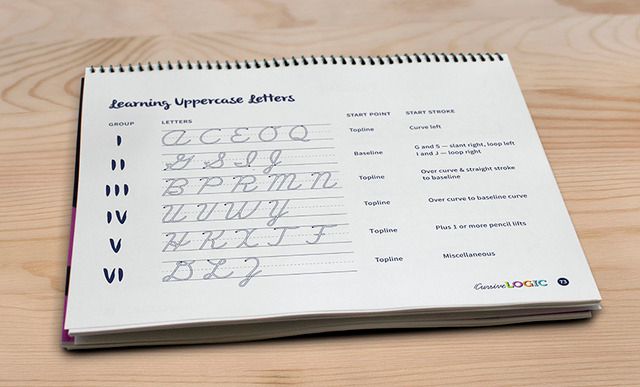 Learning Uppercase Letters
GROUP LETTERS START POINT START STROKE
I A C E O Q Topline Curve left
II G S I J Baseline G and S — slant right, loop left
I and J — loop right
III B P R M N Topline Over curve & straight stroke
to baseline
IV U V W Y Topline Over curve to baseline curve
V H K X T F Topline Plus 1 or more pencil lifts
VI D L Z Topline Miscellaneous
CursiveLOGIC 73